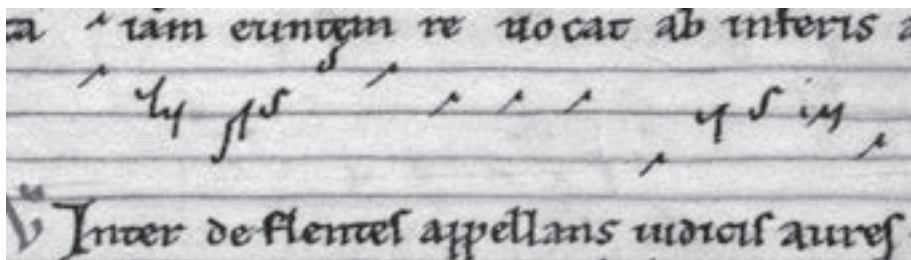 ta iam euntem re uocat ab inferis a
V Inter deflentes appellans iudicis aures